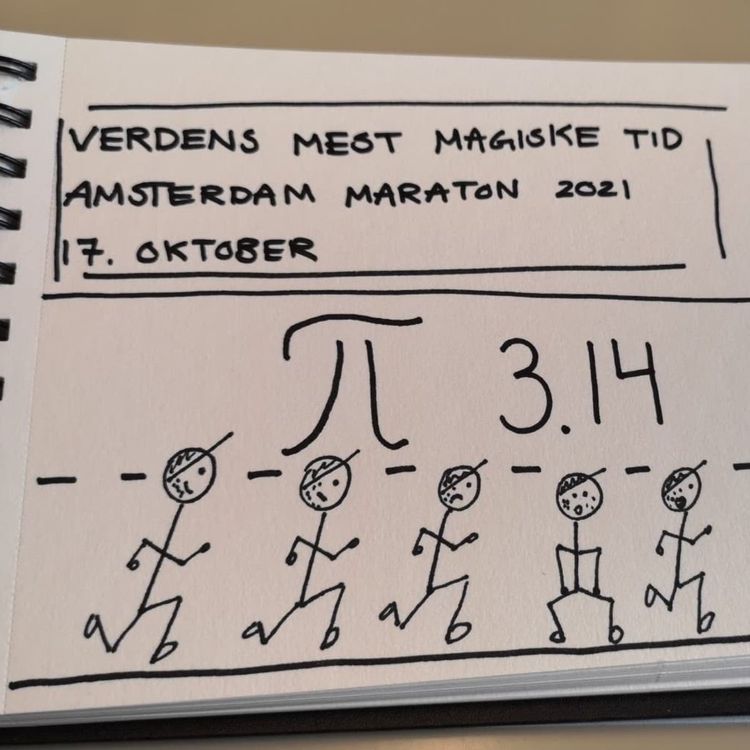 VERDENS MEST MAGISKE TID
AMSTERDAM MARATON 2021
17. OKTOBER
π 3.14